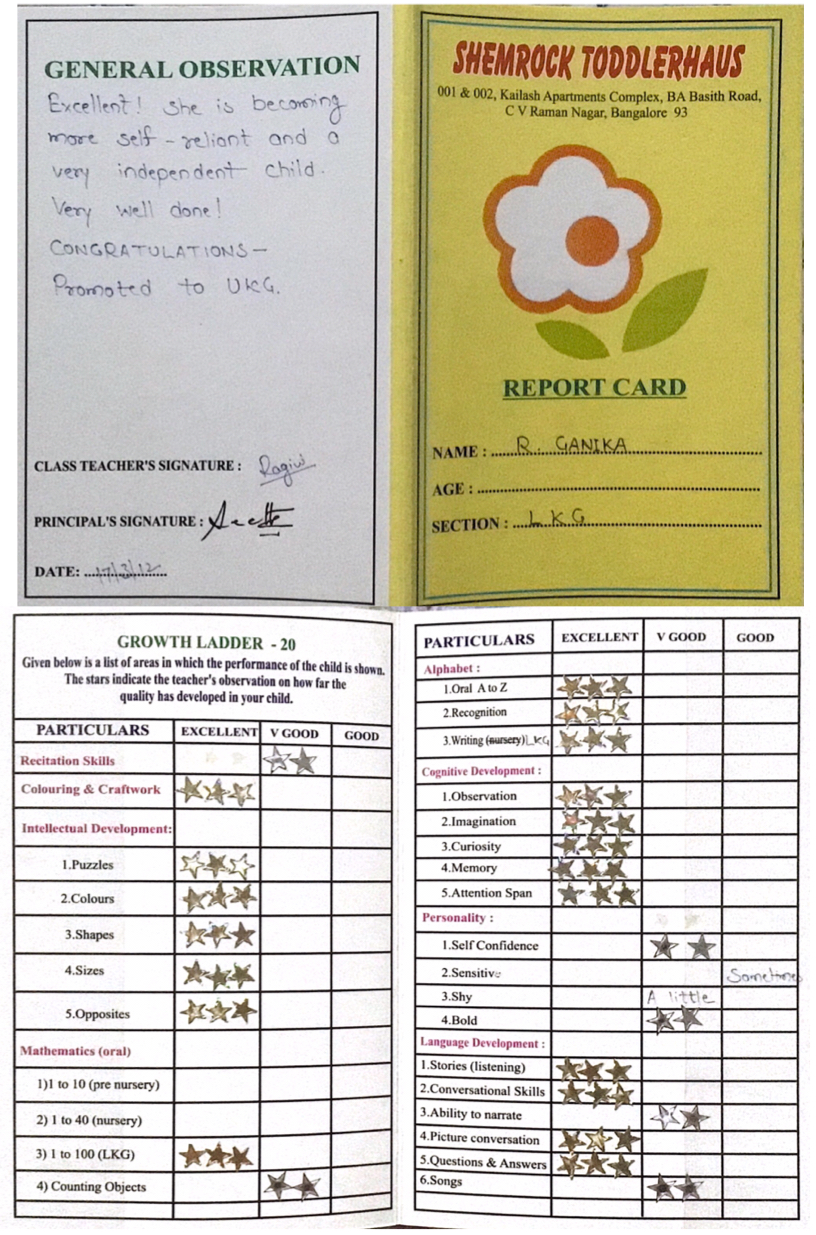 GENERAL OBSERVATION
Excellent! She is becoming
more self-reliant and a
very independent child.
Very well done!
CONGRATULATIONS-
Promoted to UKG.
CLASS TEACHER'S SIGNATURE :
PRINCIPAL'S SIGNATURE :
DATE: 17/3/12
SHEMROCK TODDLERHAUS
001 & 002, Kailash Apartments Complex, BA Basith Road,
C V Raman Nagar, Bangalore 93
REPORT CARD
NAME : R. GANIKA
AGE :
SECTION : L K G
GROWTH LADDER - 20
Given below is a list of areas in which the performance of the child is shown.
The stars indicate the teacher's observation on how far the
quality has developed in your child.
PARTICULARS EXCELLENT V GOOD GOOD
Recitation Skills
Colouring & Craftwork
Intellectual Development:
1.Puzzles
2.Colours
3.Shapes
4.Sizes
5.Opposites
Mathematics (oral)
1)1 to 10 (pre nursery)
2) 1 to 40 (nursery)
3) 1 to 100 (LKG)
4) Counting Objects
PARTICULARS EXCELLENT V GOOD GOOD
Alphabet :
1.Oral A to Z
2.Recognition
3.Writing (nursery) LKG
Cognitive Development :
1.Observation
2.Imagination
3.Curiosity
4.Memory
5.Attention Span
Personality :
1.Self Confidence
2.Sensitive Sometimes
3.Shy A little
4.Bold
Language Development :
1.Stories (listening)
2.Conversational Skills
3.Ability to narrate
4.Picture conversation
5.Questions & Answers
6.Songs